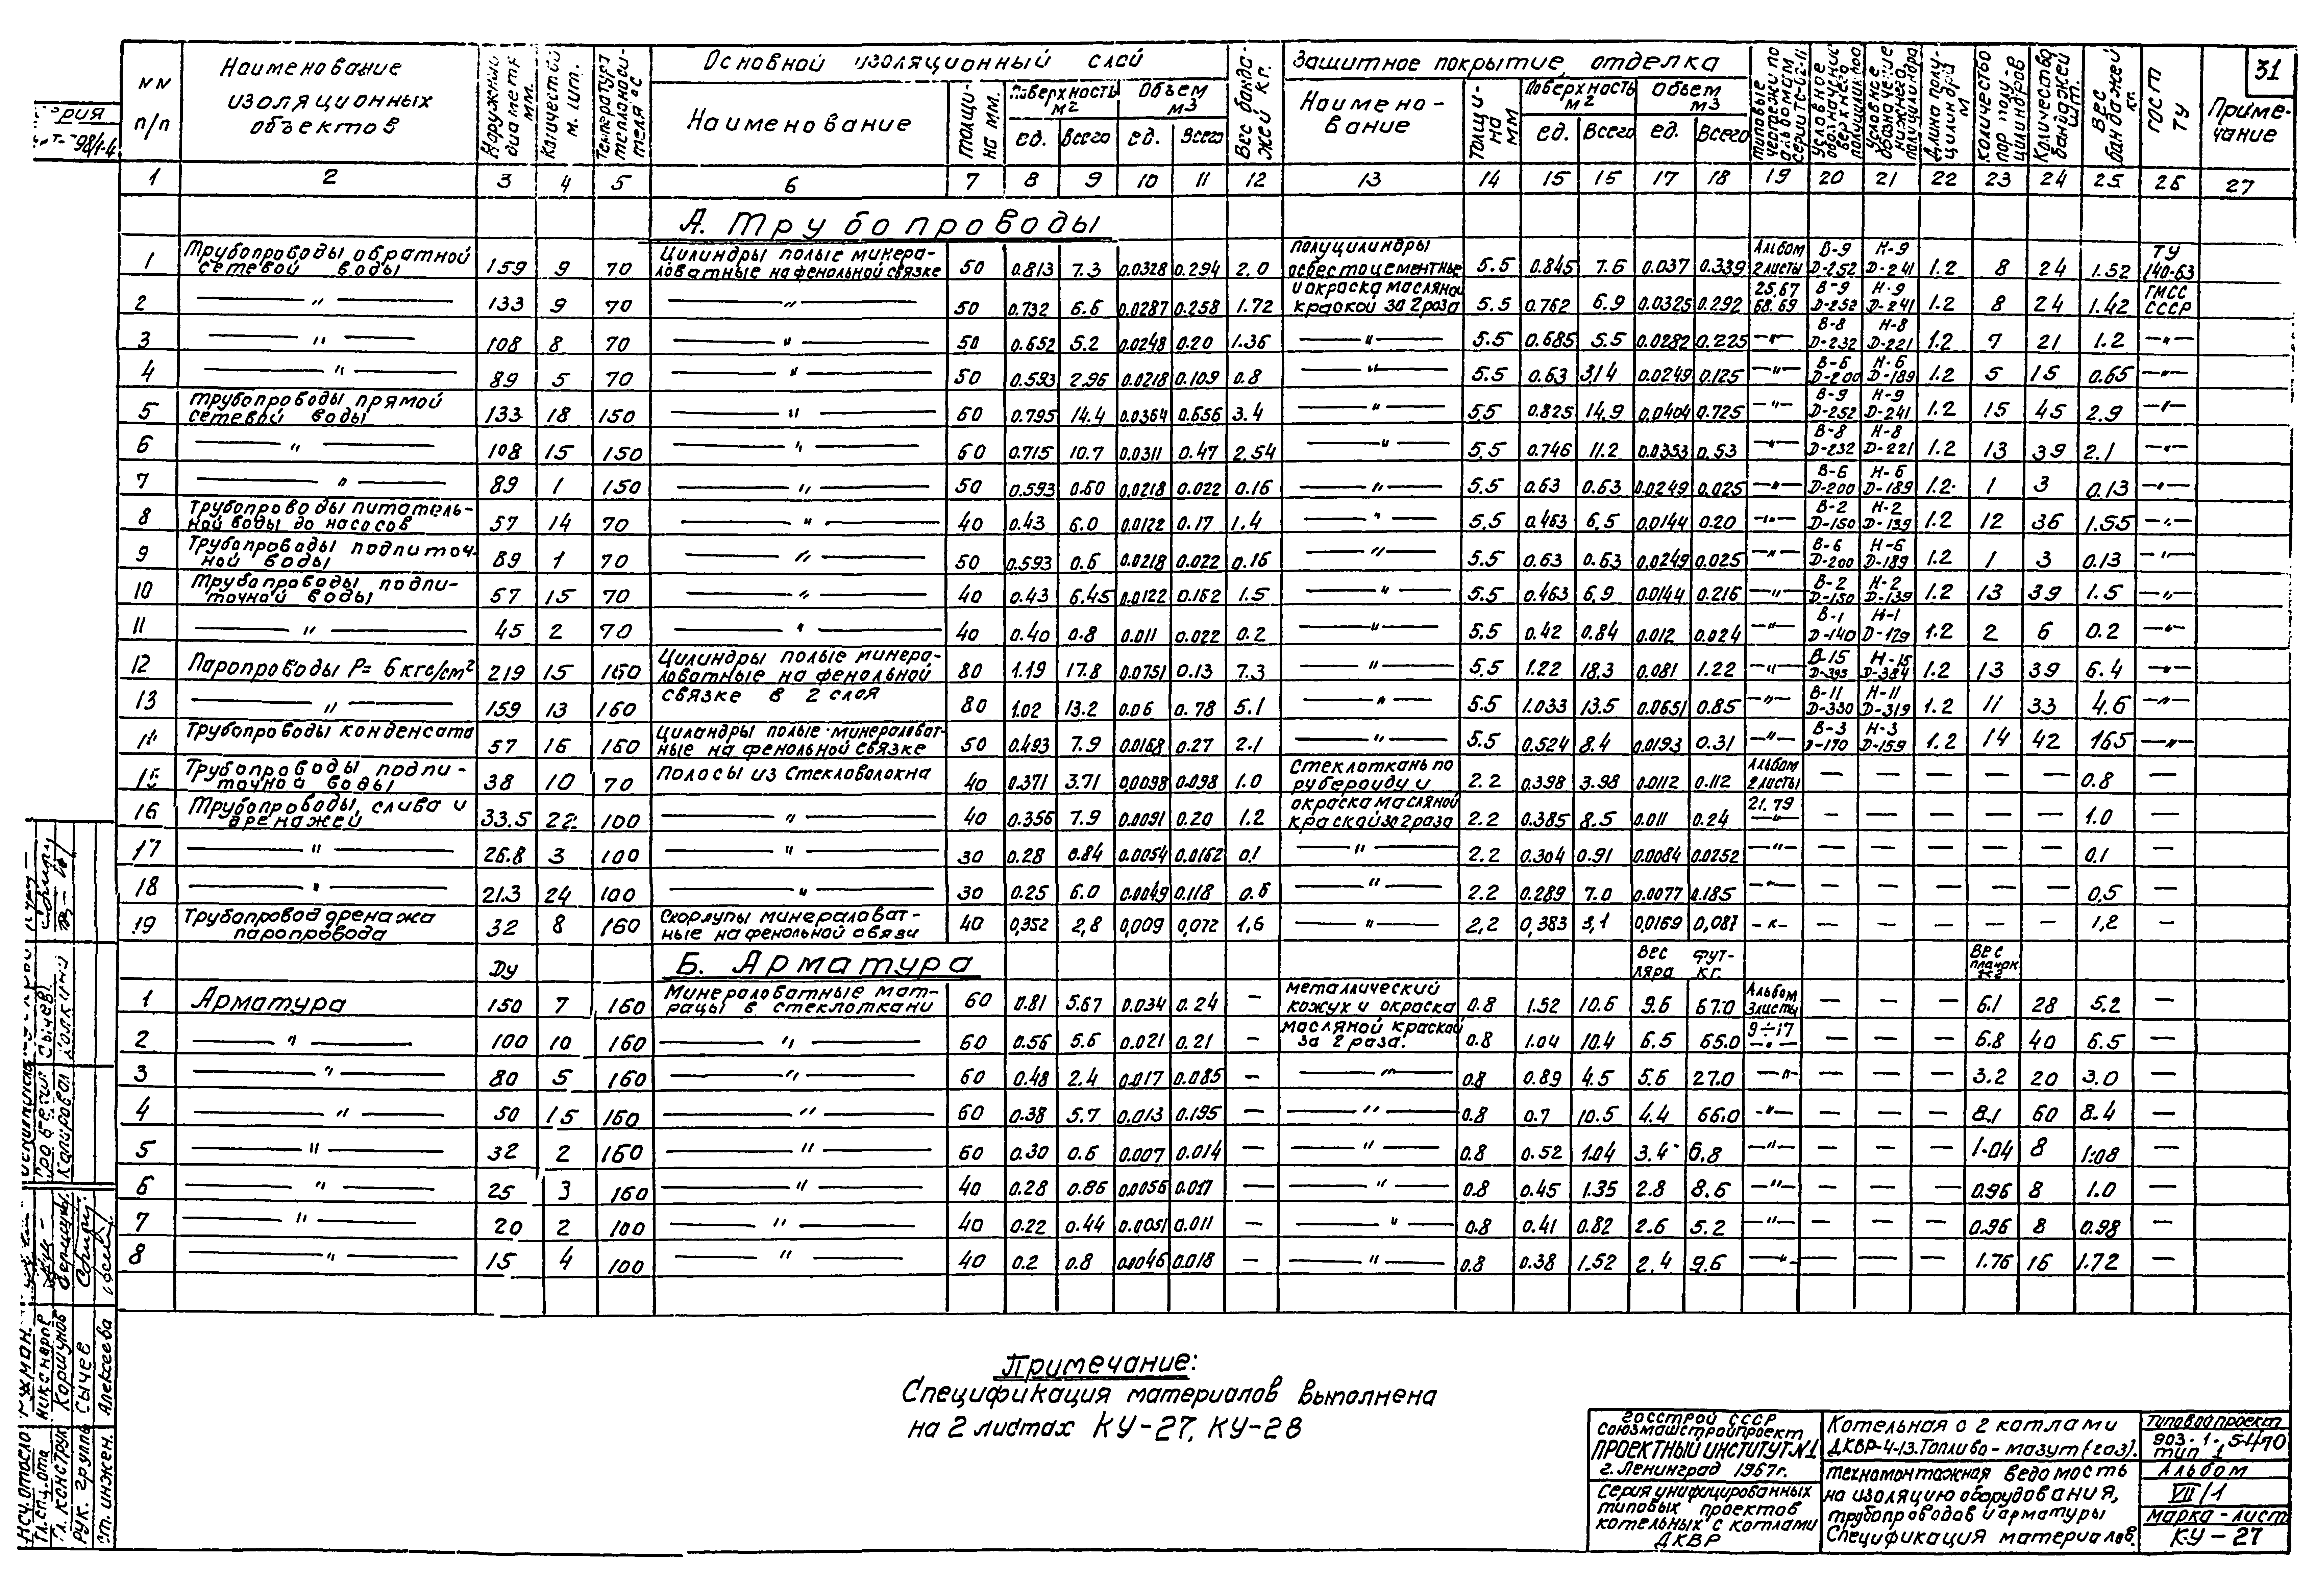 31
NN п/п
Наименование изоляционных объектов
Наружный диаметр мм.
Количество м. шт.
Температура теплоносителя °С
Основной изоляционный слой
Наименование
Толщина мм.
Поверхность м2
ед. Всего
Объем м3
ед. Всего
Вес бандажей кг.
Защитное покрытие, отделка
Наименование
Толщина мм
Поверхность м2
ед. Всего
Объем м3
ед. Всего
Типовые чертежи по альбомам серии ТС-02-11
Условное обозначение верхнего полуцилиндра
Условное обозначение нижнего полуцилиндра
Длина полуцилиндра м
Количество пар полуцилиндров
Количество бандажей шт.
Вес бандажей кг.
ГОСТ ТУ
Примечание
1 2 3 4 5 6 7 8 9 10 11 12 13 14 15 16 17 18 19 20 21 22 23 24 25 26 27
А. Трубопроводы
1 Трубопроводы обратной сетевой воды 159 9 70 Цилиндры полые минераловатные на фенольной связке 50 0.813 7.3 0.0328 0.294 2.0 полуцилиндры асбестоцементные 5.5 0.845 7.6 0.037 0.339 Альбом 2 листы В-9 Д-252 Н-9 Д-241 1.2 8 24 1.52 ТУ 140-63
2 — " — 133 9 70 — " — 50 0.732 6.6 0.0287 0.258 1.72 и окраска масляной краской за 2 раза 5.5 0.762 6.9 0.0325 0.292 25,67 68.69 В-9 Д-252 Н-9 Д-241 1.2 8 24 1.42 ГМСС СССР
3 — " — 108 8 70 — " — 50 0.652 5.2 0.0248 0.20 1.36 — " — 5.5 0.685 5.5 0.0282 0.225 — " — В-8 Д-232 Н-8 Д-221 1.2 7 21 1.2 — " —
4 — " — 89 5 70 — " — 50 0.593 2.96 0.0218 0.109 0.8 — " — 5.5 0.63 3.14 0.0249 0.125 — " — В-6 Д-200 Н-6 Д-189 1.2 5 15 0.65 — " —
5 Трубопроводы прямой сетевой воды 133 18 150 — " — 60 0.795 14.4 0.0364 0.656 3.4 — " — 5.5 0.825 14.9 0.0404 0.725 — " — В-9 Д-252 Н-9 Д-241 1.2 15 45 2.9 — " —
6 — " — 108 15 150 — " — 60 0.715 10.7 0.0311 0.47 2.54 — " — 5.5 0.746 11.2 0.0353 0.53 — " — В-8 Д-232 Н-8 Д-221 1.2 13 39 2.1 — " —
7 — " — 89 1 150 — " — 50 0.593 0.60 0.0218 0.022 0.16 — " — 5.5 0.63 0.63 0.0249 0.025 — " — В-6 Д-200 Н-6 Д-189 1.2 1 3 0.13 — " —
8 Трубопроводы питательной воды до насосов 57 14 70 — " — 40 0.43 6.0 0.0122 0.17 1.4 — " — 5.5 0.463 6.5 0.0144 0.20 — " — В-2 Д-150 Н-2 Д-139 1.2 12 36 1.55 — " —
9 Трубопроводы подпиточной воды 89 1 70 — " — 50 0.593 0.6 0.0218 0.022 0.16 — " — 5.5 0.63 0.63 0.0249 0.025 — " — В-6 Д-200 Н-6 Д-189 1.2 1 3 0.13 — " —
10 Трубопроводы подпиточной воды 57 15 70 — " — 40 0.43 6.45 0.0122 0.162 1.5 — " — 5.5 0.463 6.9 0.0144 0.216 — " — В-2 Д-150 Н-2 Д-139 1.2 13 39 1.5 — " —
11 — " — 45 2 70 — " — 40 0.40 0.8 0.011 0.022 0.2 — " — 5.5 0.42 0.84 0.012 0.024 — " — В-1 Д-140 Н-1 Д-129 1.2 2 6 0.2 — " —
12 Паропроводы Р= 6 кгс/см2 219 15 160 Цилиндры полые минераловатные на фенольной связке в 2 слоя 80 1.19 17.8 0.0751 0.13 7.3 — " — 5.5 1.22 18.3 0.081 1.22 — " — В-15 Д-395 Н-15 Д-384 1.2 13 39 6.4 — " —
13 — " — 159 13 160 80 1.02 13.2 0.06 0.78 5.1 — " — 5.5 1.033 13.5 0.0651 0.85 — " — В-11 Д-330 Н-11 Д-319 1.2 11 33 4.6 — " —
14 Трубопроводы конденсата 57 16 160 Цилиндры полые минераловатные на фенольной связке 50 0.493 7.9 0.0168 0.27 2.1 — " — 5.5 0.524 8.4 0.0193 0.31 — " — В-3 Д-170 Н-3 Д-159 1.2 14 42 165 — " —
15 Трубопроводы подпиточной воды 38 10 70 Полосы из стекловолокна 40 0.371 3.71 0.0098 0.098 1.0 Стеклоткань по рубероиду и 2.2 0.398 3.98 0.0112 0.112 Альбом 2 листы — — — — — 0.8 —
16 Трубопроводы слива и дренажей 33.5 22 100 — " — 40 0.356 7.9 0.0091 0.20 1.2 окраска масляной краской за 2 раза 2.2 0.385 8.5 0.011 0.24 21,79 — " — — — — — — 1.0 —
17 — " — 26.8 3 100 — " — 30 0.28 0.84 0.0054 0.0162 0.1 — " — 2.2 0.304 0.91 0.0084 0.0252 — " — — — — — — 0.1 —
18 — " — 21.3 24 100 — " — 30 0.25 6.0 0.0049 0.118 0.6 — " — 2.2 0.289 7.0 0.0077 0.185 — " — — — — — — 0.5 —
19 Трубопровод дренажа паропровода 32 8 160 Скорлупы минераловатные на фенольной связи 40 0,352 2,8 0,009 0,072 1,6 — " — 2,2 0,383 3,1 0,0169 0,087 — " — — — — — — 1,2 —
Ду Б. Арматура Вес футляра кг. Вес планок кг
1 Арматура 150 7 160 Минераловатные матрацы в стеклоткани 60 0.81 5.67 0.034 0.24 — металлический кожух и окраска 0.8 1.52 10.6 9.6 67.0 Альбом 3 листы — — — 6.1 28 5.2 —
2 — " — 100 10 160 — " — 60 0.56 5.6 0.021 0.21 — масляной краской за 2 раза. 0.8 1.04 10.4 6.5 65.0 9÷17 — " — — — — 6.8 40 6.5 —
3 — " — 80 5 160 — " — 60 0.48 2.4 0.017 0.085 — — " — 0.8 0.89 4.5 5.6 27.0 — " — — — — 3.2 20 3.0 —
4 — " — 50 15 160 — " — 60 0.38 5.7 0.013 0.195 — — " — 0.8 0.7 10.5 4.4 66.0 — " — — — — 8.1 60 8.4 —
5 — " — 32 2 160 — " — 60 0.30 0.6 0.007 0.014 — — " — 0.8 0.52 1.04 3.4 6.8 — " — — — — 1.04 8 1.08 —
6 — " — 25 3 160 — " — 40 0.28 0.86 0.0056 0.017 — — " — 0.8 0.45 1.35 2.8 8.6 — " — — — — 0.96 8 1.0 —
7 — " — 20 2 100 — " — 40 0.22 0.44 0.0051 0.011 — — " — 0.8 0.41 0.82 2.6 5.2 — " — — — — 0.96 8 0.98 —
8 — " — 15 4 100 — " — 40 0.2 0.8 0.0046 0.018 — — " — 0.8 0.38 1.52 2.4 9.6 — " — — — — 1.76 16 1.72 —
Примечание:
Спецификация материалов выполнена
на 2 листах КУ-27, КУ-28
Госстрой СССР
Союзмашстройпроект
ПРОЕКТНЫЙ ИНСТИТУТ N1
г. Ленинград 1967г.
Серия унифицированных
типовых проектов
котельных с котлами
ДКВР
Котельная с 2 котлами
ДКВР-4-13. Топливо-мазут (газ).
Техномонтажная ведомость
на изоляцию оборудования,
трубопроводов и арматуры
Спецификация материалов.
Типовой проект
903-1-, 5-4/70
тип 1
Альбом
VII/1
марка-лист
КУ-27
Гл. спец. ота
Гл. конструк Коршунов
Рук. группы Сычев
Ст. инжен. Алексеева